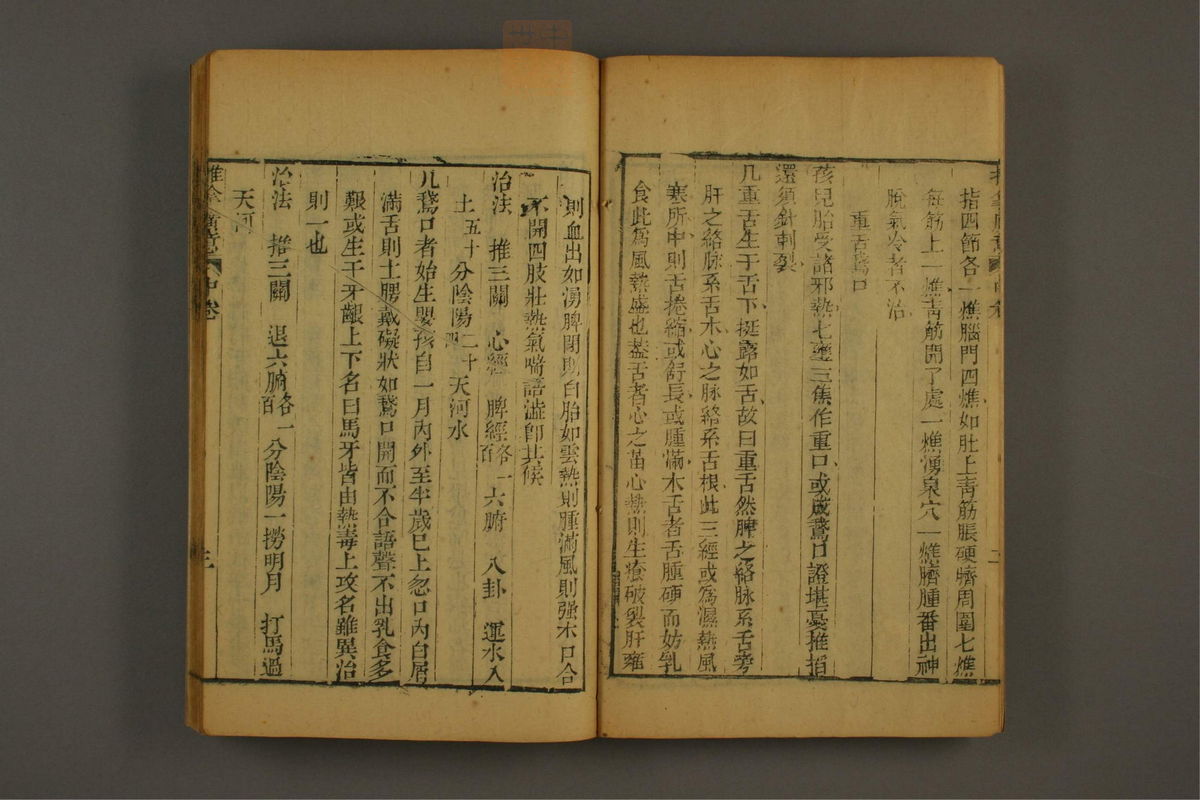 指四節各一燋腦門四燋如肚上青筋脹硬臍周圍七燋
每筋上一燋青筋開了處一燋湧泉穴一燋臍腫番出神
脫氣冷者不治
重舌鵞口
孩兒胎受諸邪熱七壅三焦作重口或成鵞口證堪憂推指
還須針刺裂
凡重舌生于舌下挺露如舌故曰重舌然脾之絡脉系舌旁
肝之絡脉系舌木心之脉絡系舌根此三經或為濕熱風
寒所中則舌捲縮或舒長或腫滿木舌者舌腫硬而妨乳
食此為風熱盛也盖舌者心之苗心熱則生瘡破裂肝雍
則血出如湧脾閉則白胎如雲熱則腫滿風則强木口合
不開四肢壯熱氣喘語澁卽其候
治法 推三關 心經 脾經各百 一六腑 八卦 運水入
土五十 分陰陽二十 天河水
凡鵞口者始生嬰孩自一月內外至半歲已上忽口內白屑
滿舌則上腭戴礙狀如鵞口開而不合語聲不出乳食多
艱或生于牙齦上下名曰馬牙皆由熱毒上攻名雖異治
則一也
治法 推三關 退六腑各百 一分陰陽一撈明月 打馬過
天河
推拿廣意 中卷 三